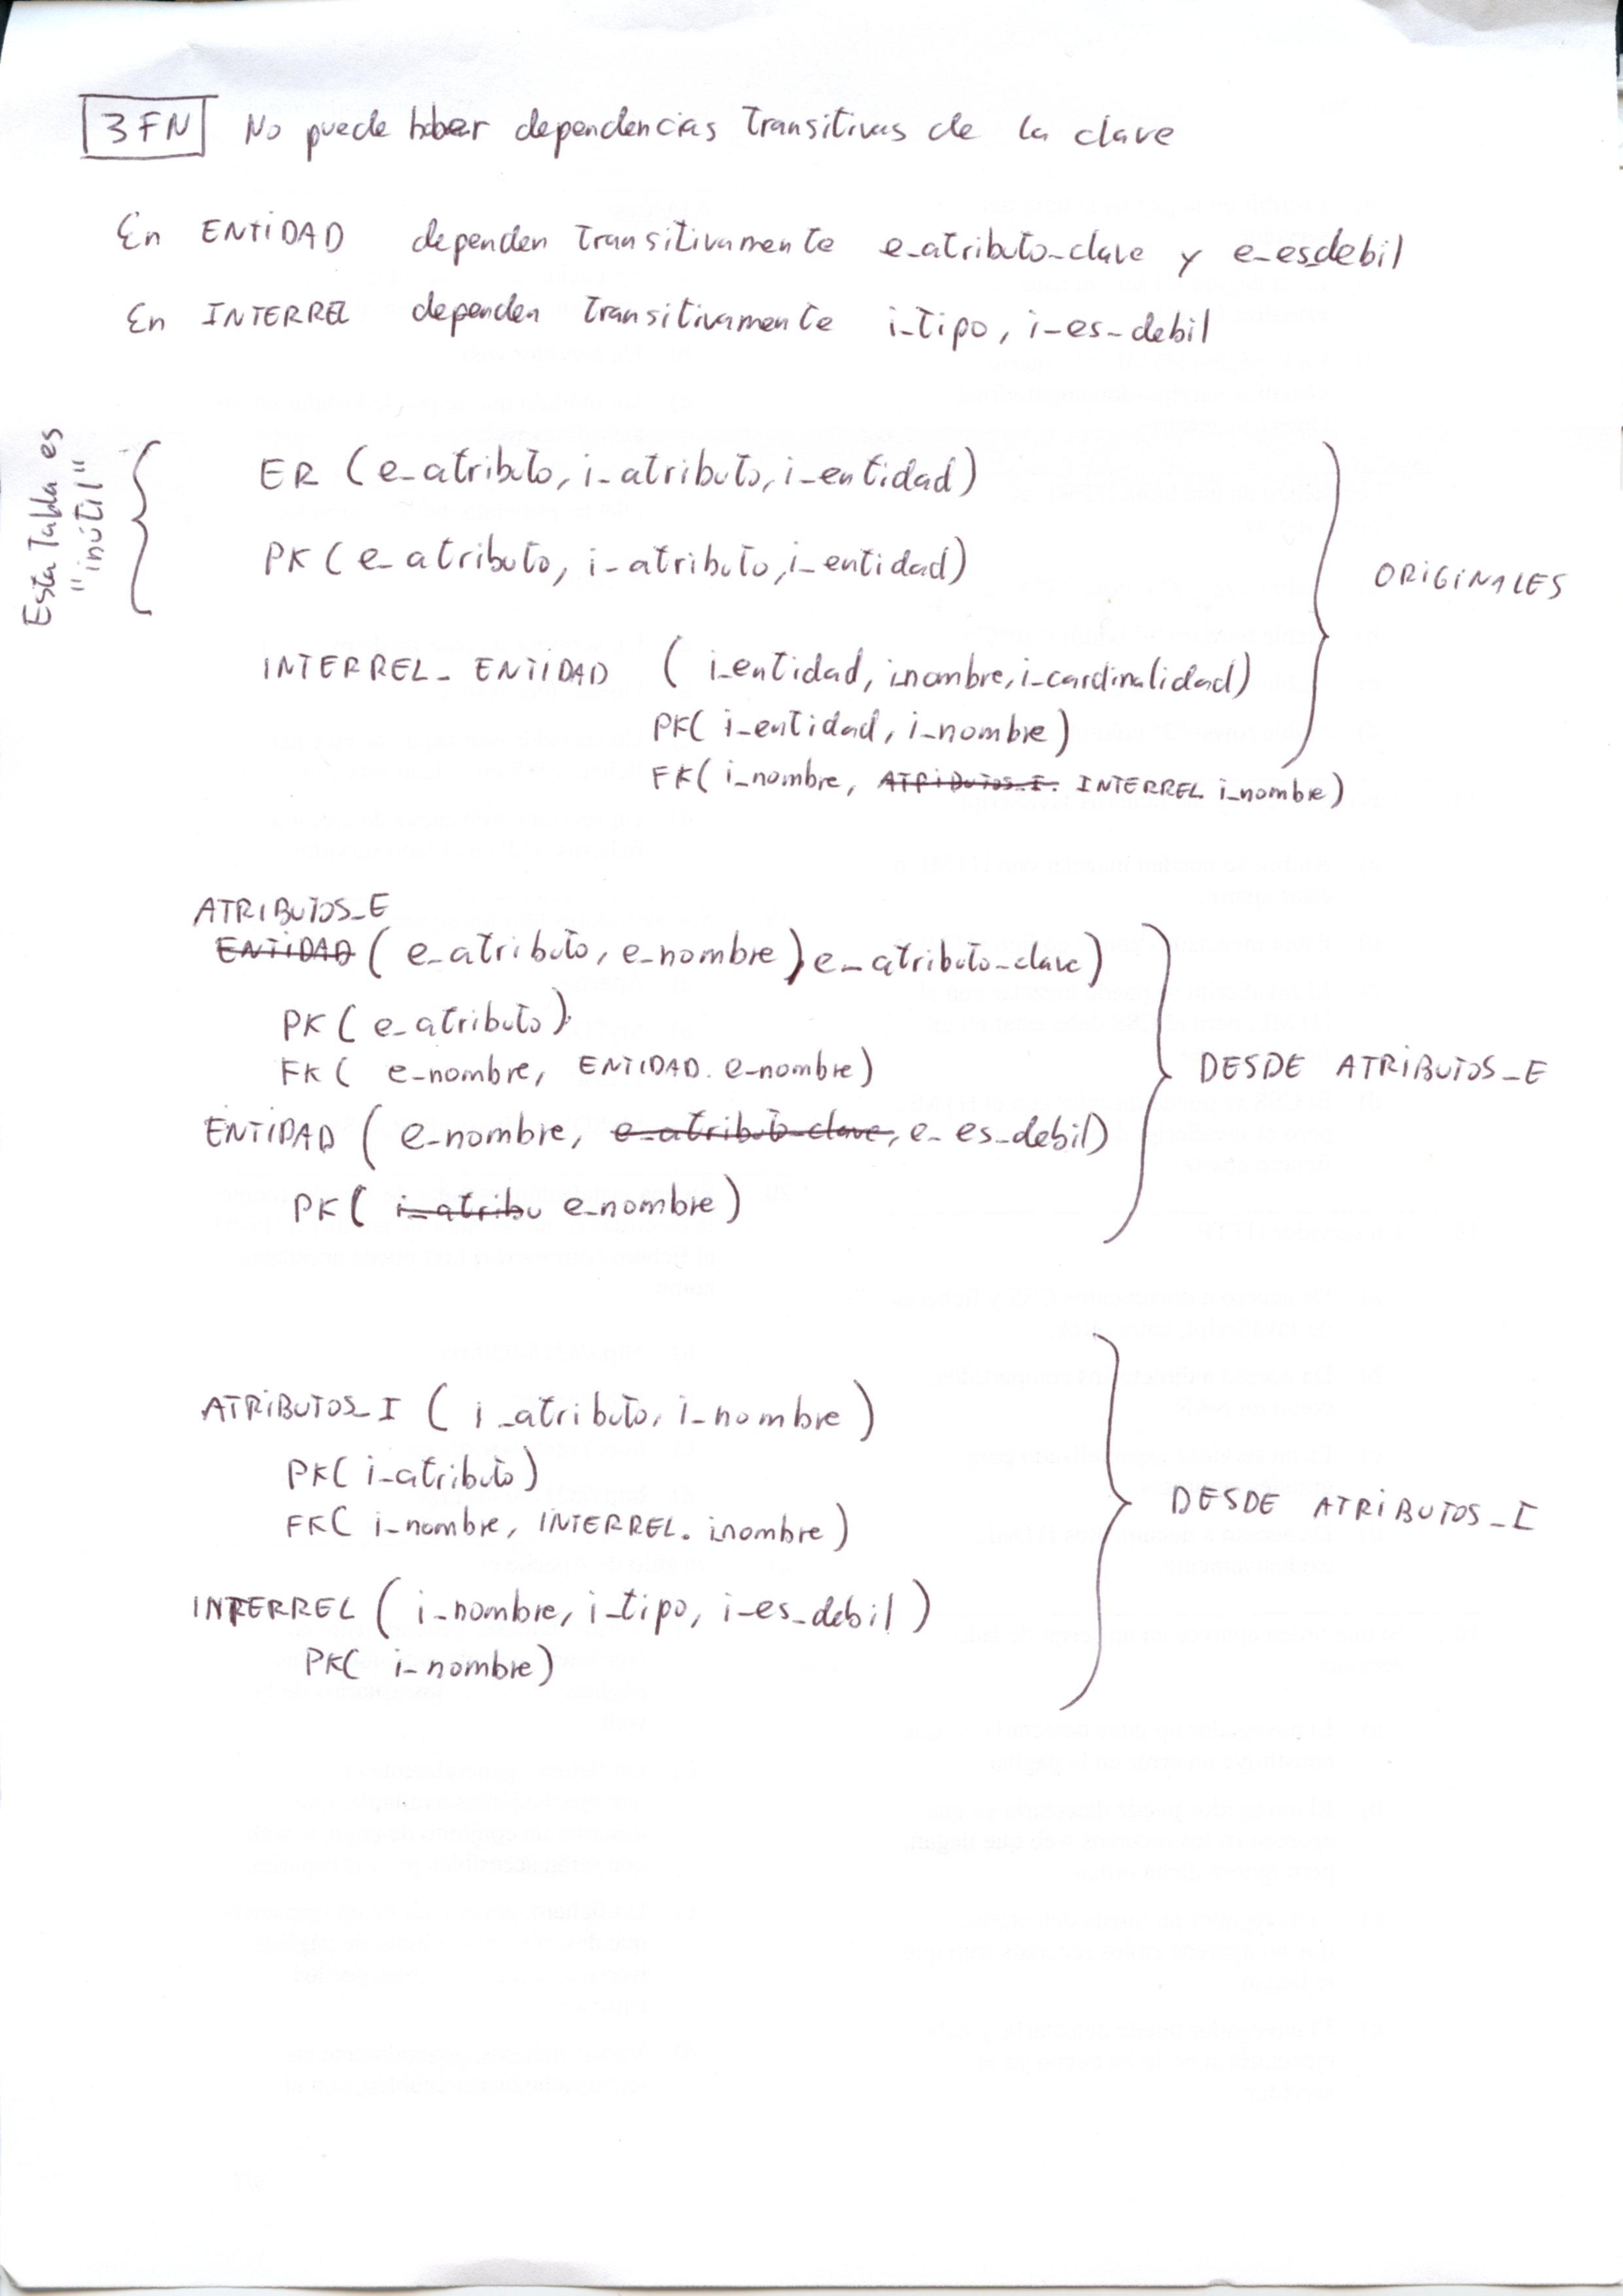 3FN No puede haber dependencias transitivas de la clave
En ENTIDAD dependen transitivamente e_atributo_clave y e_es_debil
En INTERREL dependen transitivamente i_tipo, i_es_debil
Esta tabla es "inútil"
ER (e_atributo, i_atributo, i_entidad)
PK (e_atributo, i_atributo, i_entidad)
ORIGINALES
INTERREL_ENTIDAD (i_entidad, i_nombre, i_cardinalidad)
PK( i_entidad, i_nombre)
FK( i_nombre, ATRIBUTOS_I. INTERREL i_nombre)
ATRIBUTOS_E
ENTIDAD ( e_atributo, e_nombre), e_atributo_clave)
PK ( e_atributo)
FK ( e_nombre, ENTIDAD. e_nombre)
DESDE ATRIBUTOS_E
ENTIDAD ( e_nombre, e_atributo_clave, e_es_debil)
PK ( i_atribu e_nombre)
ATRIBUTOS_I ( i_atributo, i_nombre)
PK( i_atributo)
FK( i_nombre, INTERREL. i_nombre)
DESDE ATRIBUTOS_I
INTERREL ( i_nombre, i_tipo, i_es_debil)
PK( i_nombre)